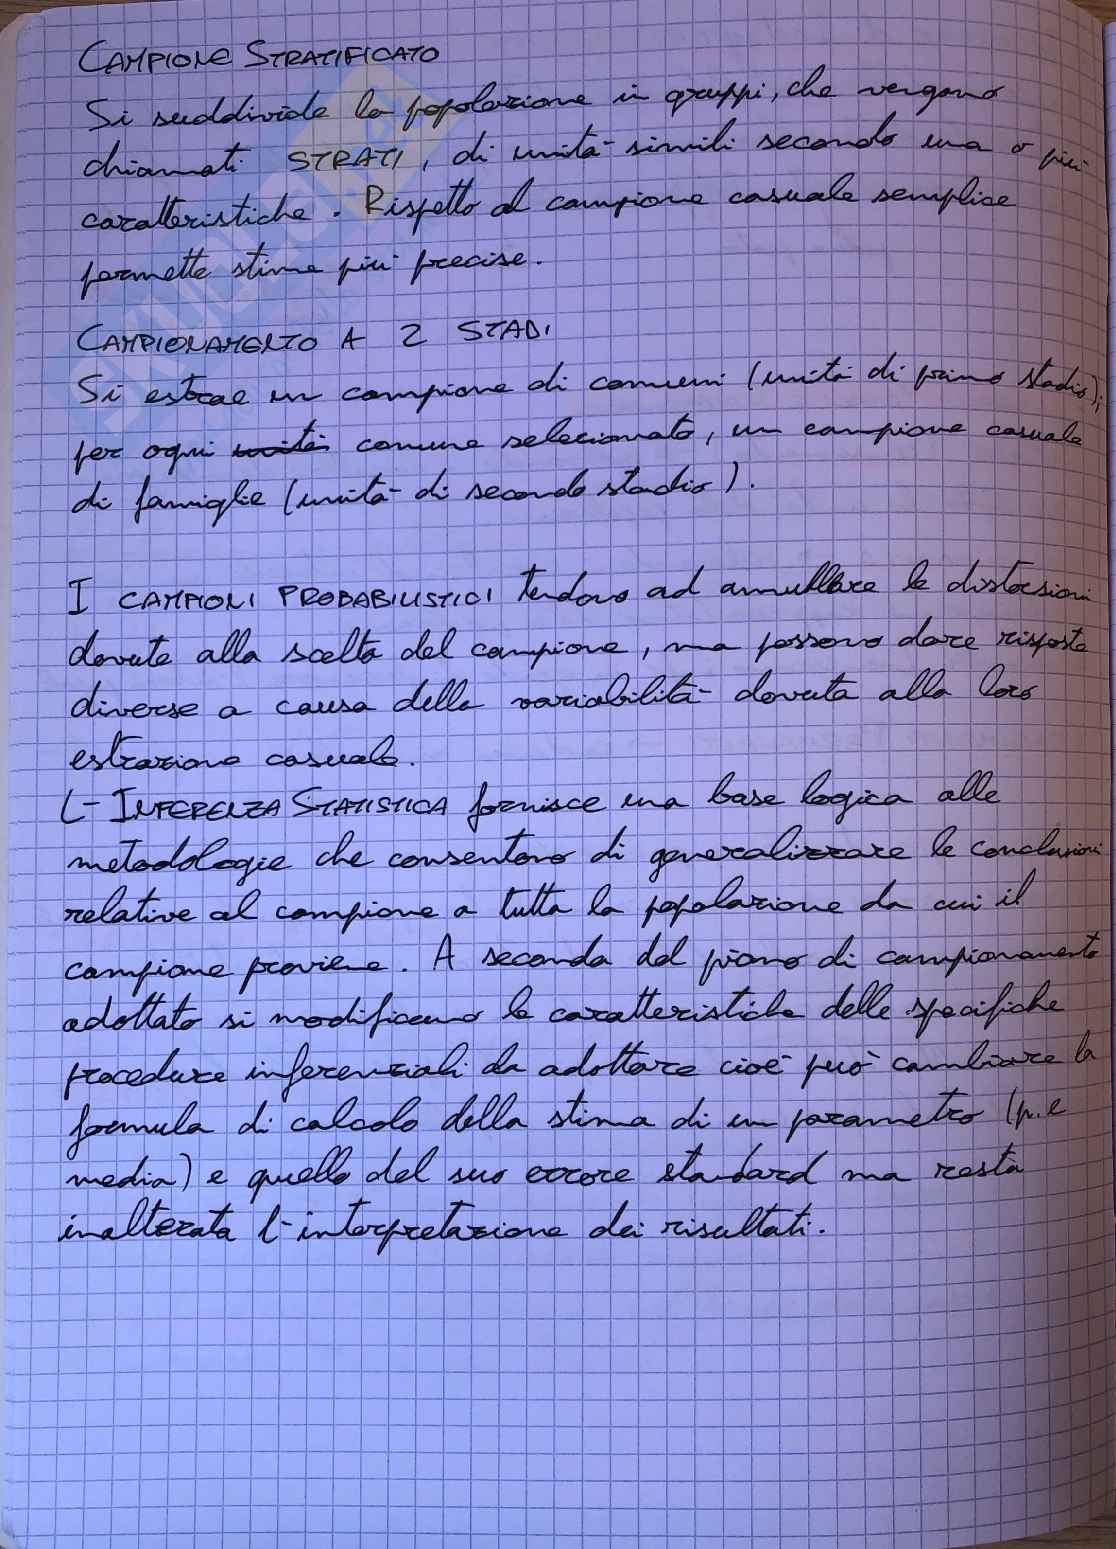 CAMPIONE STRATIFICATO
Si suddivide la popolazione in gruppi, che vengono
chiamati STRATI, di unità simili secondo una o più
caratteristiche. Rispetto al campione casuale semplice
permette stime più precise.
CAMPIONAMENTO A 2 STADI
Si estrae un campione di comuni (unità di primo stadio);
per ogni unità comune selezionato, un campione casuale
di famiglie (unità di secondo stadio).
I CAMPIONI PROBABILISTICI tendono ad annullare le distorsioni
dovute alla scelta del campione, ma possono dare risposte
diverse a causa della variabilità dovuta alla loro
estrazione casuale.
L'INFERENZA STATISTICA fornisce una base logica alle
metodologie che consentono di generalizzare le conclusioni
relative al campione a tutta la popolazione da cui il
campione proviene. A seconda del piano di campionamento
adottato si modificano le caratteristiche delle specifiche
procedure inferenziali da adottare cioè può cambiare la
formula di calcolo della stima di un parametro (p.e
media) e quello del suo errore standard ma resta
inalterata l'interpretazione dei risultati.